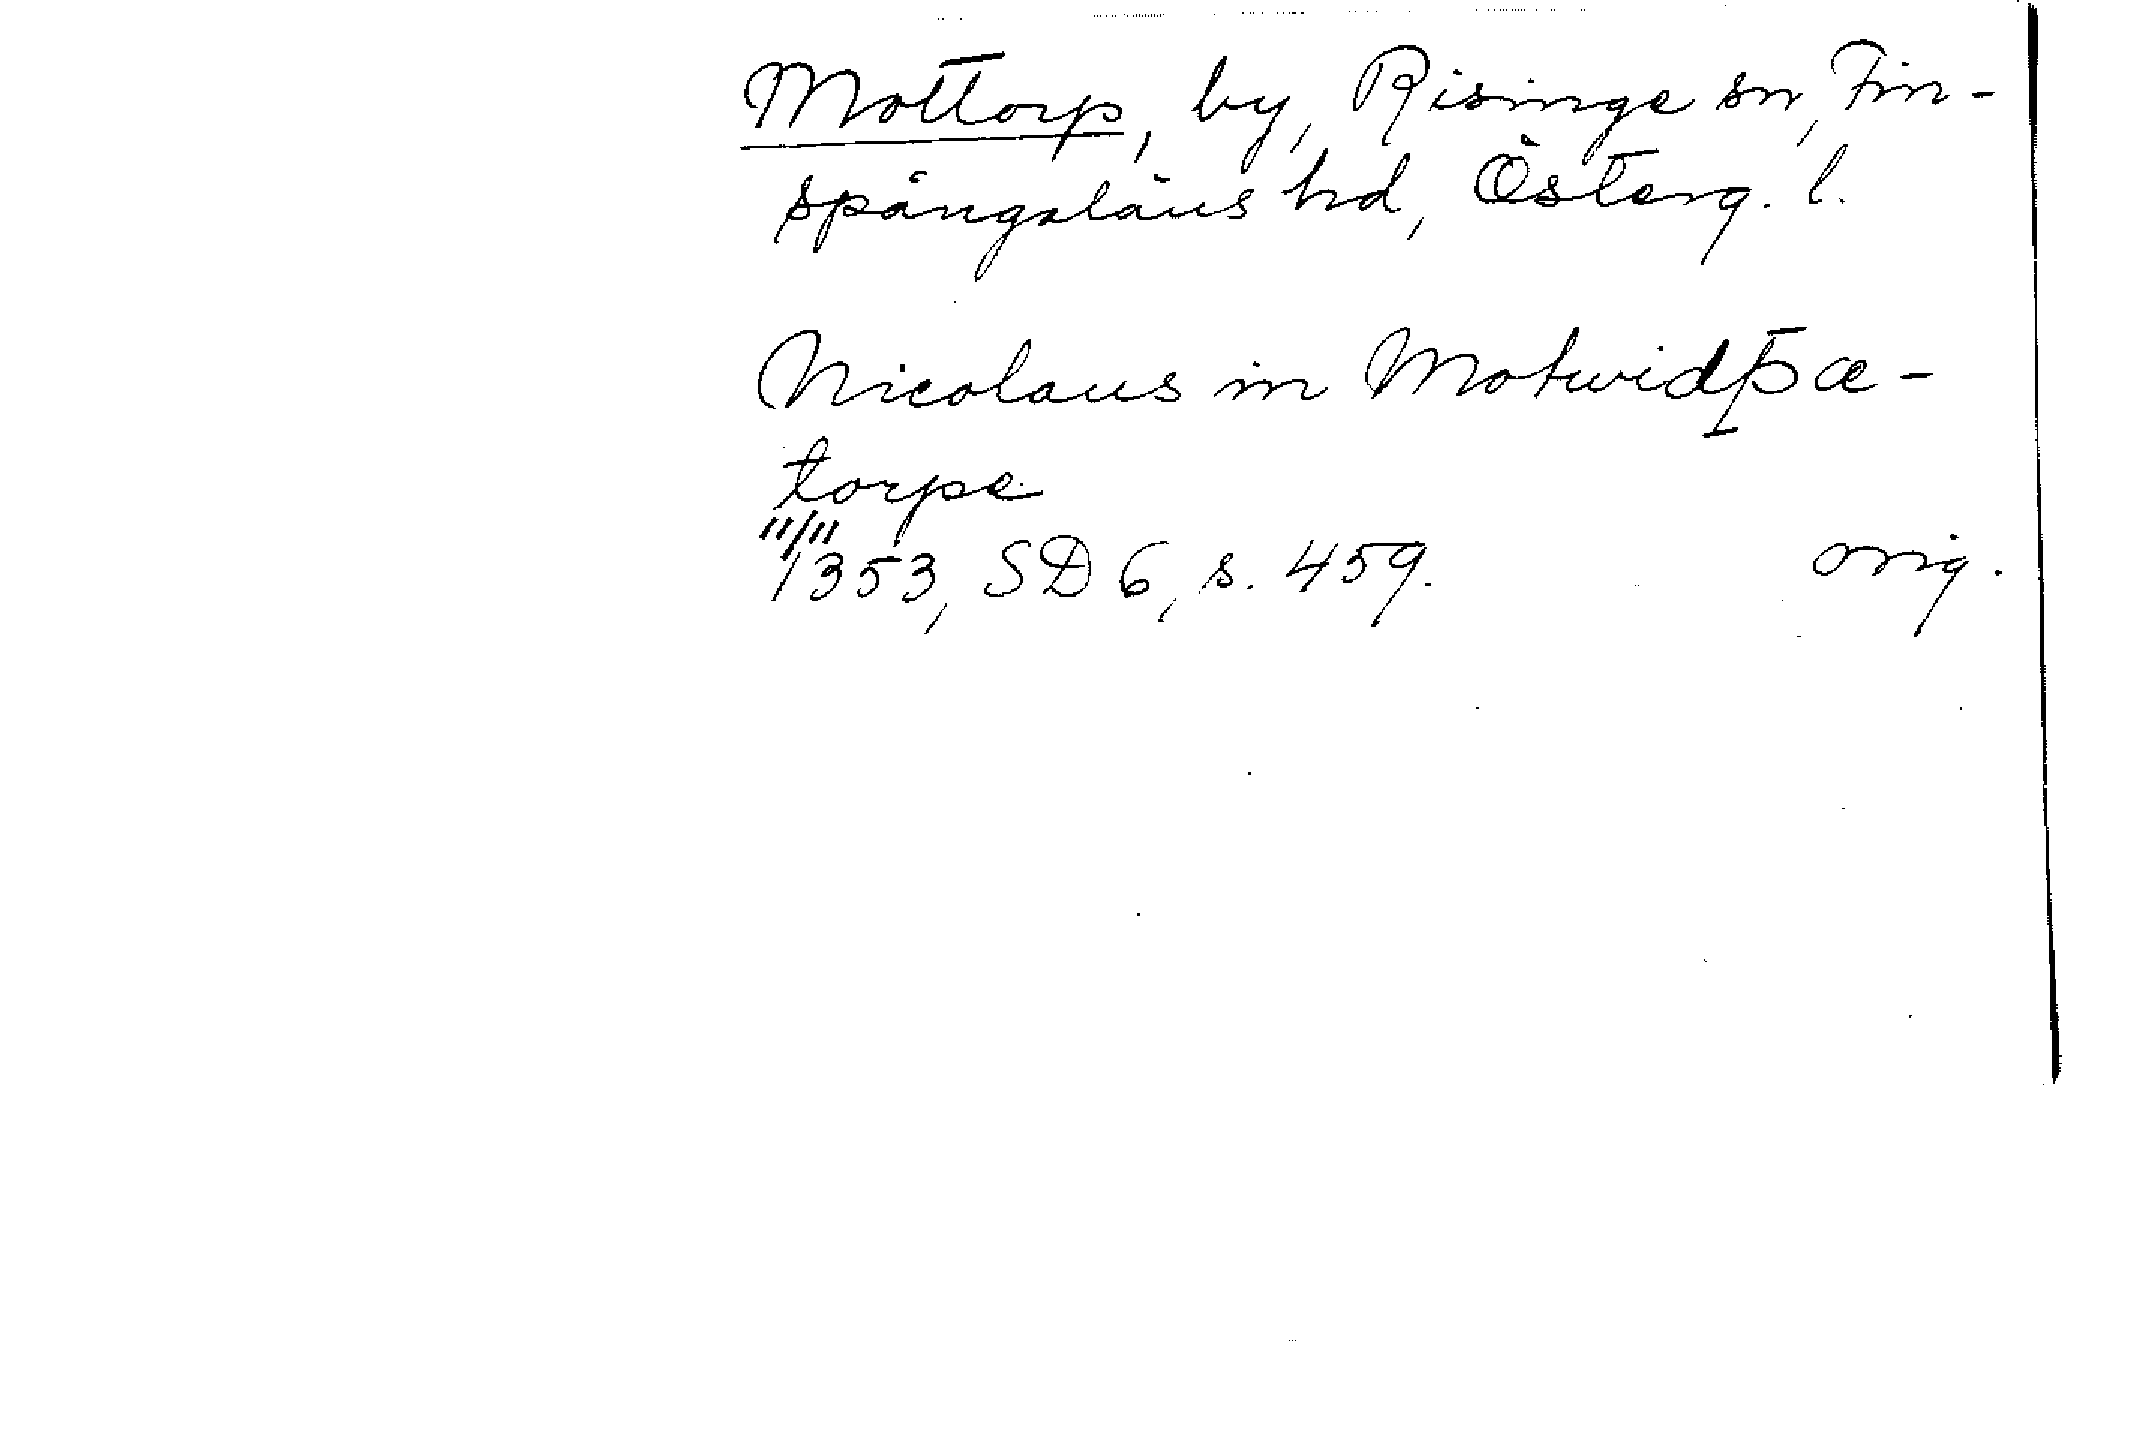 Mottorp, by, Risinge sn, Fin-
spångaläns hd, Österg. l.
Nicolaus in Motwidþæ-
torpe
11/11
1353, SD 6, s. 459. orig.